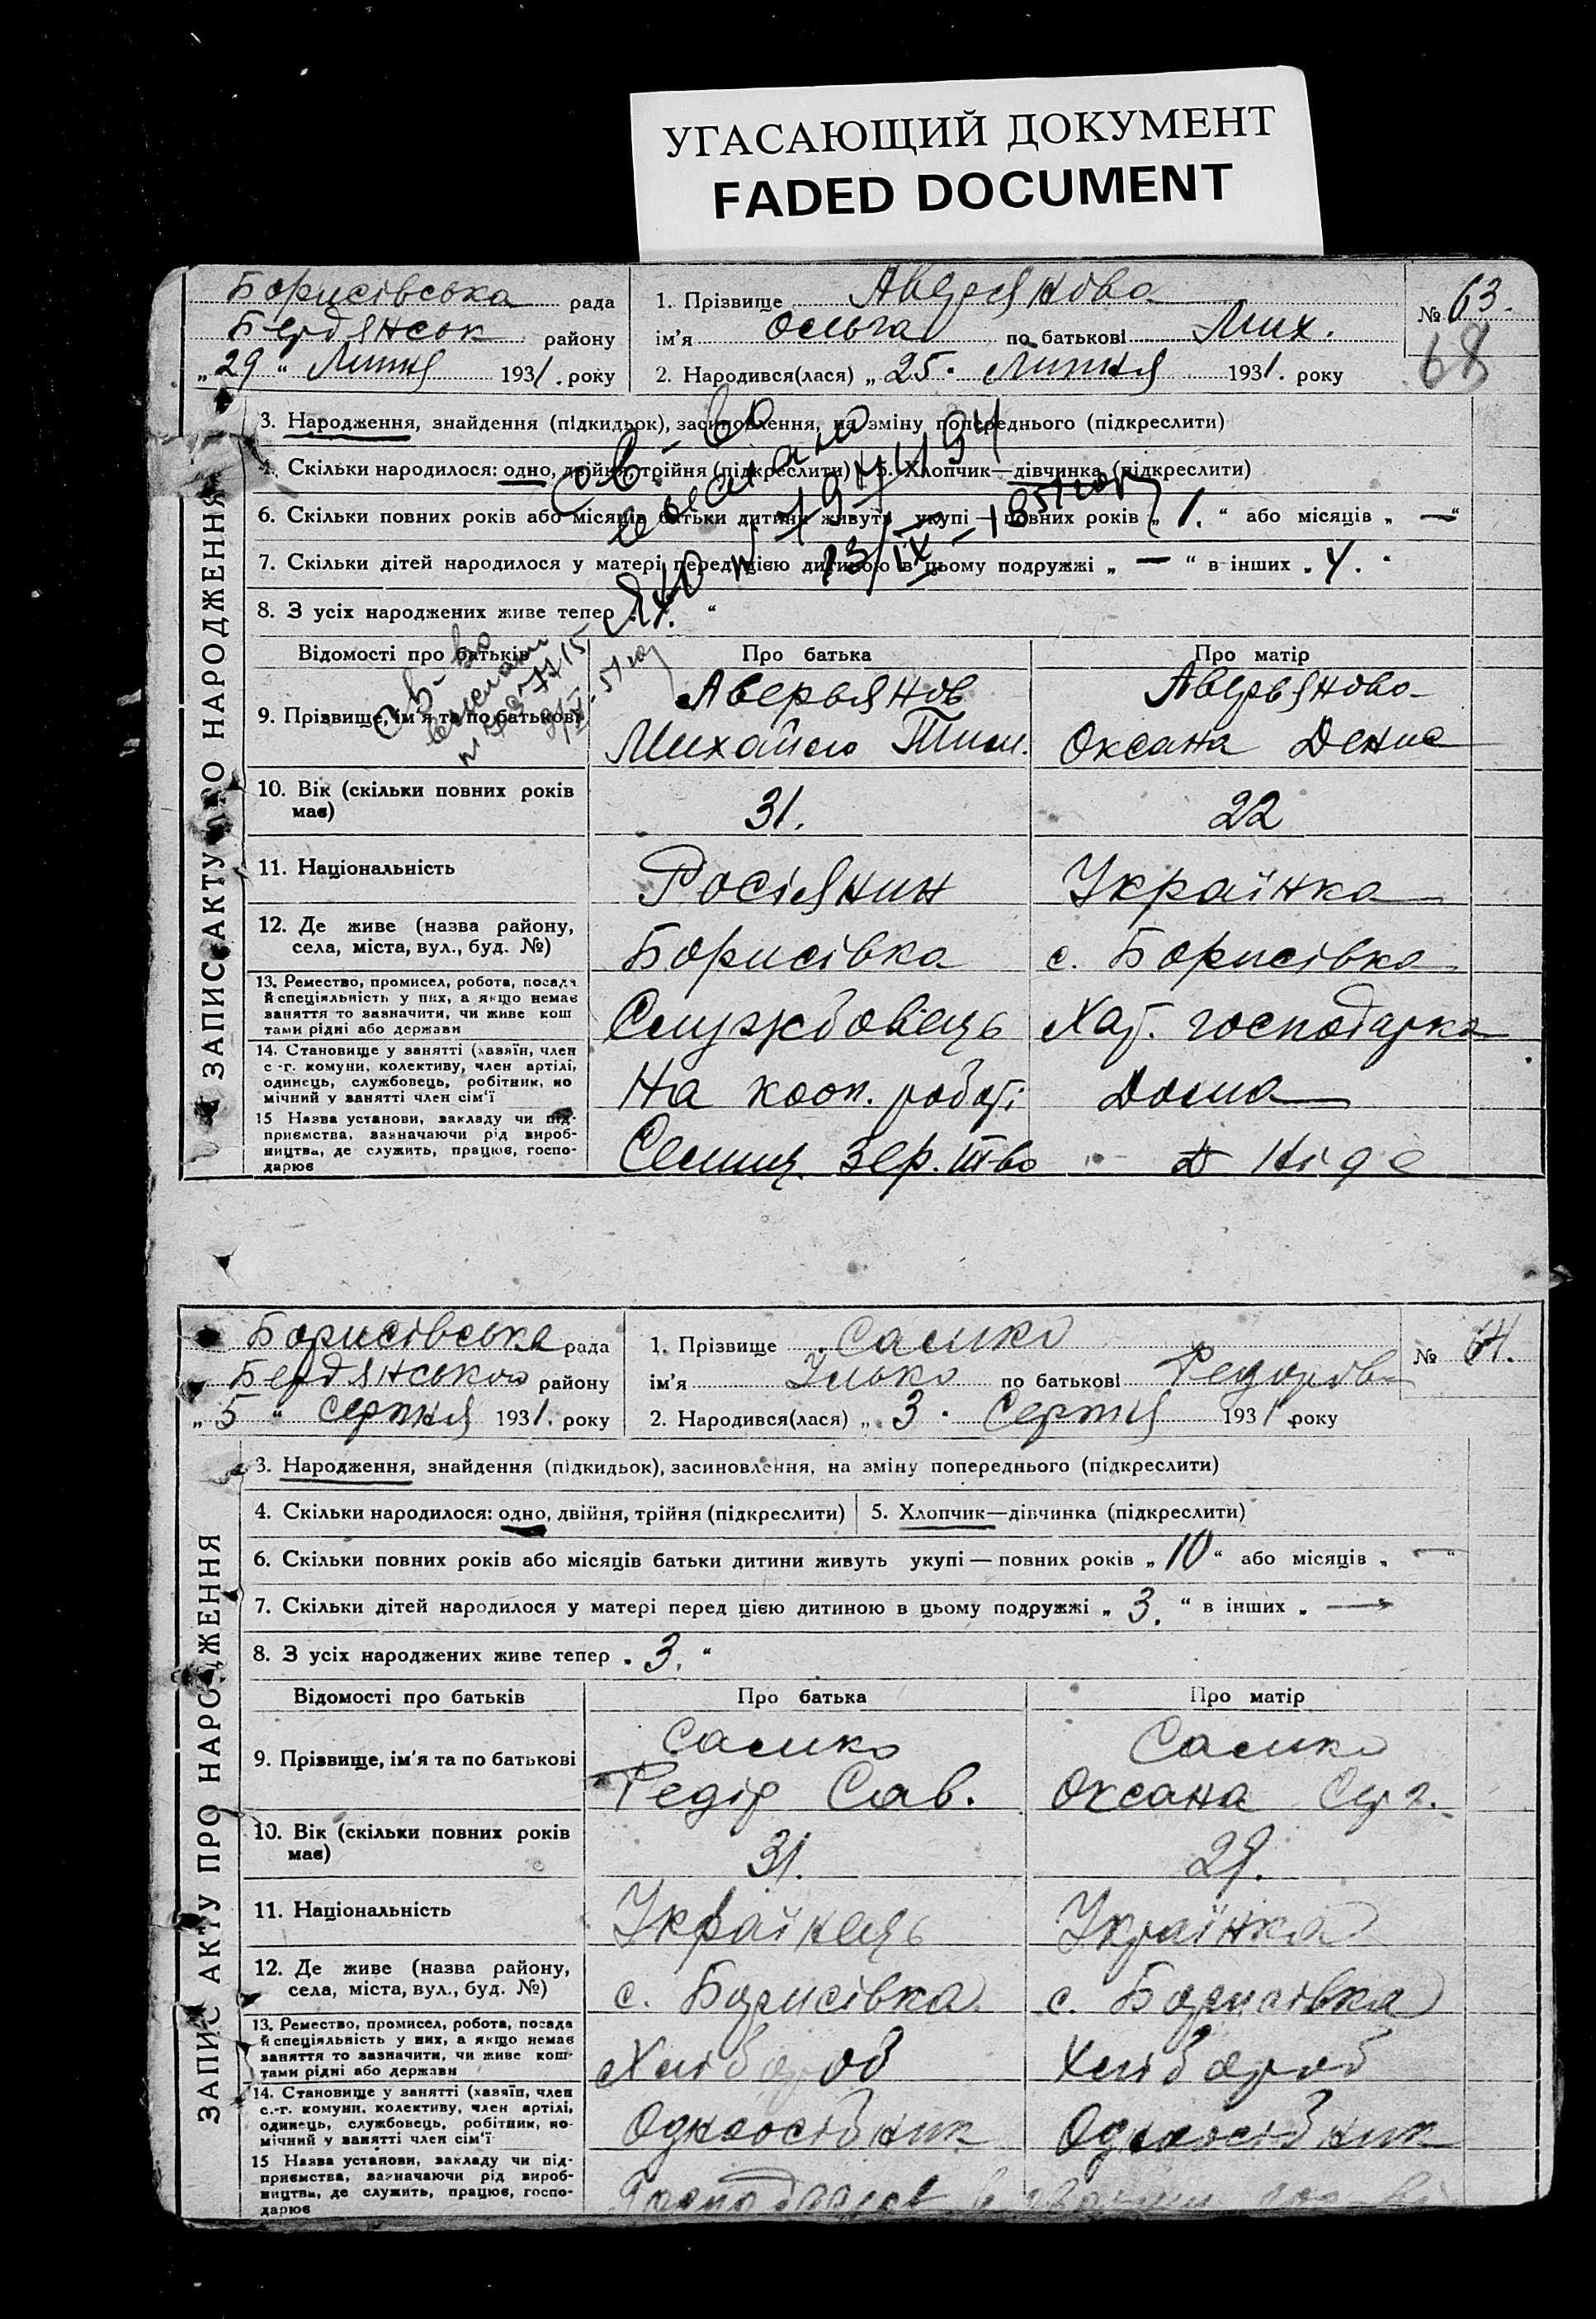 УГАСАЮЩИЙ ДОКУМЕНТ
FADED DOCUMENT
Борисівська рада
Бердянськ району
„29“ Липня 1931. року
1. Прізвище Аверянова
ім'я Ольга по батькові Мих.
2. Народився(лася) „25. Липня 1931. року
№ 63.
68
ЗАПИС АКТУ ПРО НАРОДЖЕННЯ
3. Народження, знайдення (підкидьок), засиновлення, на зміну попереднього (підкреслити)
4. Скільки народилося: одно, двійня, трійня (підкреслити) 5. Хлопчик—дівчинка (підкреслити)
6. Скільки повних років або місяців батьки дитини живуть укупі — повних років „1.“ або місяців „—“
7. Скільки дітей народилося у матері перед цією дитиною в цьому подружжі „—“ в інших „
8. З усіх народжених живе тепер
Св-во
выслано
Відомості про батьків Про батька Про матір
9. Прізвище, ім'я та по батькові
Аверьянов
Михайло Тим.
Аверьянова
Оксана Денис
10. Вік (скільки повних років має) 31. 22
11. Національність Росіянин Українка
12. Де живе (назва району, села, міста, вул., буд. №) Борисівка с. Борисівка
13. Ремество, промисел, робота, посада
й спеціяльність у них, а якщо немає
заняття то зазначити, чи живе кош
тами рідні або держави
Службовець Хат. господарка
14. Становище у занятті (хазяїн, член
с-г. комуни, колективу, член артілі,
одинець, службовець, робітник, по
мічний у занятті член сім'ї
На кооп. роботі Дома
15 Назва установи, закладу чи під-
приємства, зазначаючи рід вироб-
ництва, де служить, працює, госпо-
дарює
зер. тво Ніде
Борисівська рада
Бердянського району
„5“ Серпня 1931. року
1. Прізвище Салико
ім'я Ілько по батькові Федоров
2. Народився(лася) „3. Серпня 1931 року
№ 64.
ЗАПИС АКТУ ПРО НАРОДЖЕННЯ
3. Народження, знайдення (підкидьок), засиновлення, на зміну попереднього (підкреслити)
4. Скільки народилося: одно, двійня, трійня (підкреслити) 5. Хлопчик—дівчинка (підкреслити)
6. Скільки повних років або місяців батьки дитини живуть укупі — повних років „10“ або місяців „—“
7. Скільки дітей народилося у матері перед цією дитиною в цьому подружжі „3.“ в інших „—
8. З усіх народжених живе тепер „3.“
Відомості про батьків Про батька Про матір
9. Прізвище, ім'я та по батькові
Салико
Федір Сав.
Салико
Оксана Серг.
10. Вік (скільки повних років має) 31. 29.
11. Національність Українець Українка
12. Де живе (назва району, села, міста, вул., буд. №) с. Борисівка с. Борисівка
13. Ремество, промисел, робота, посада
й спеціяльність у них, а якщо немає
заняття то зазначити, чи живе кош-
тами рідні або держави
Хлібороб Хлібороб
14. Становище у занятті (хазяїн, член
с.-г. комуни, колективу, член артілі,
одинець, службовець, робітник, по-
мічний у занятті член сім'ї
Одноосібник Одноосібник
15 Назва установи, закладу чи під-
приємства, зазначаючи рід вироб-
ництва, де служить, працює, госпо-
дарює